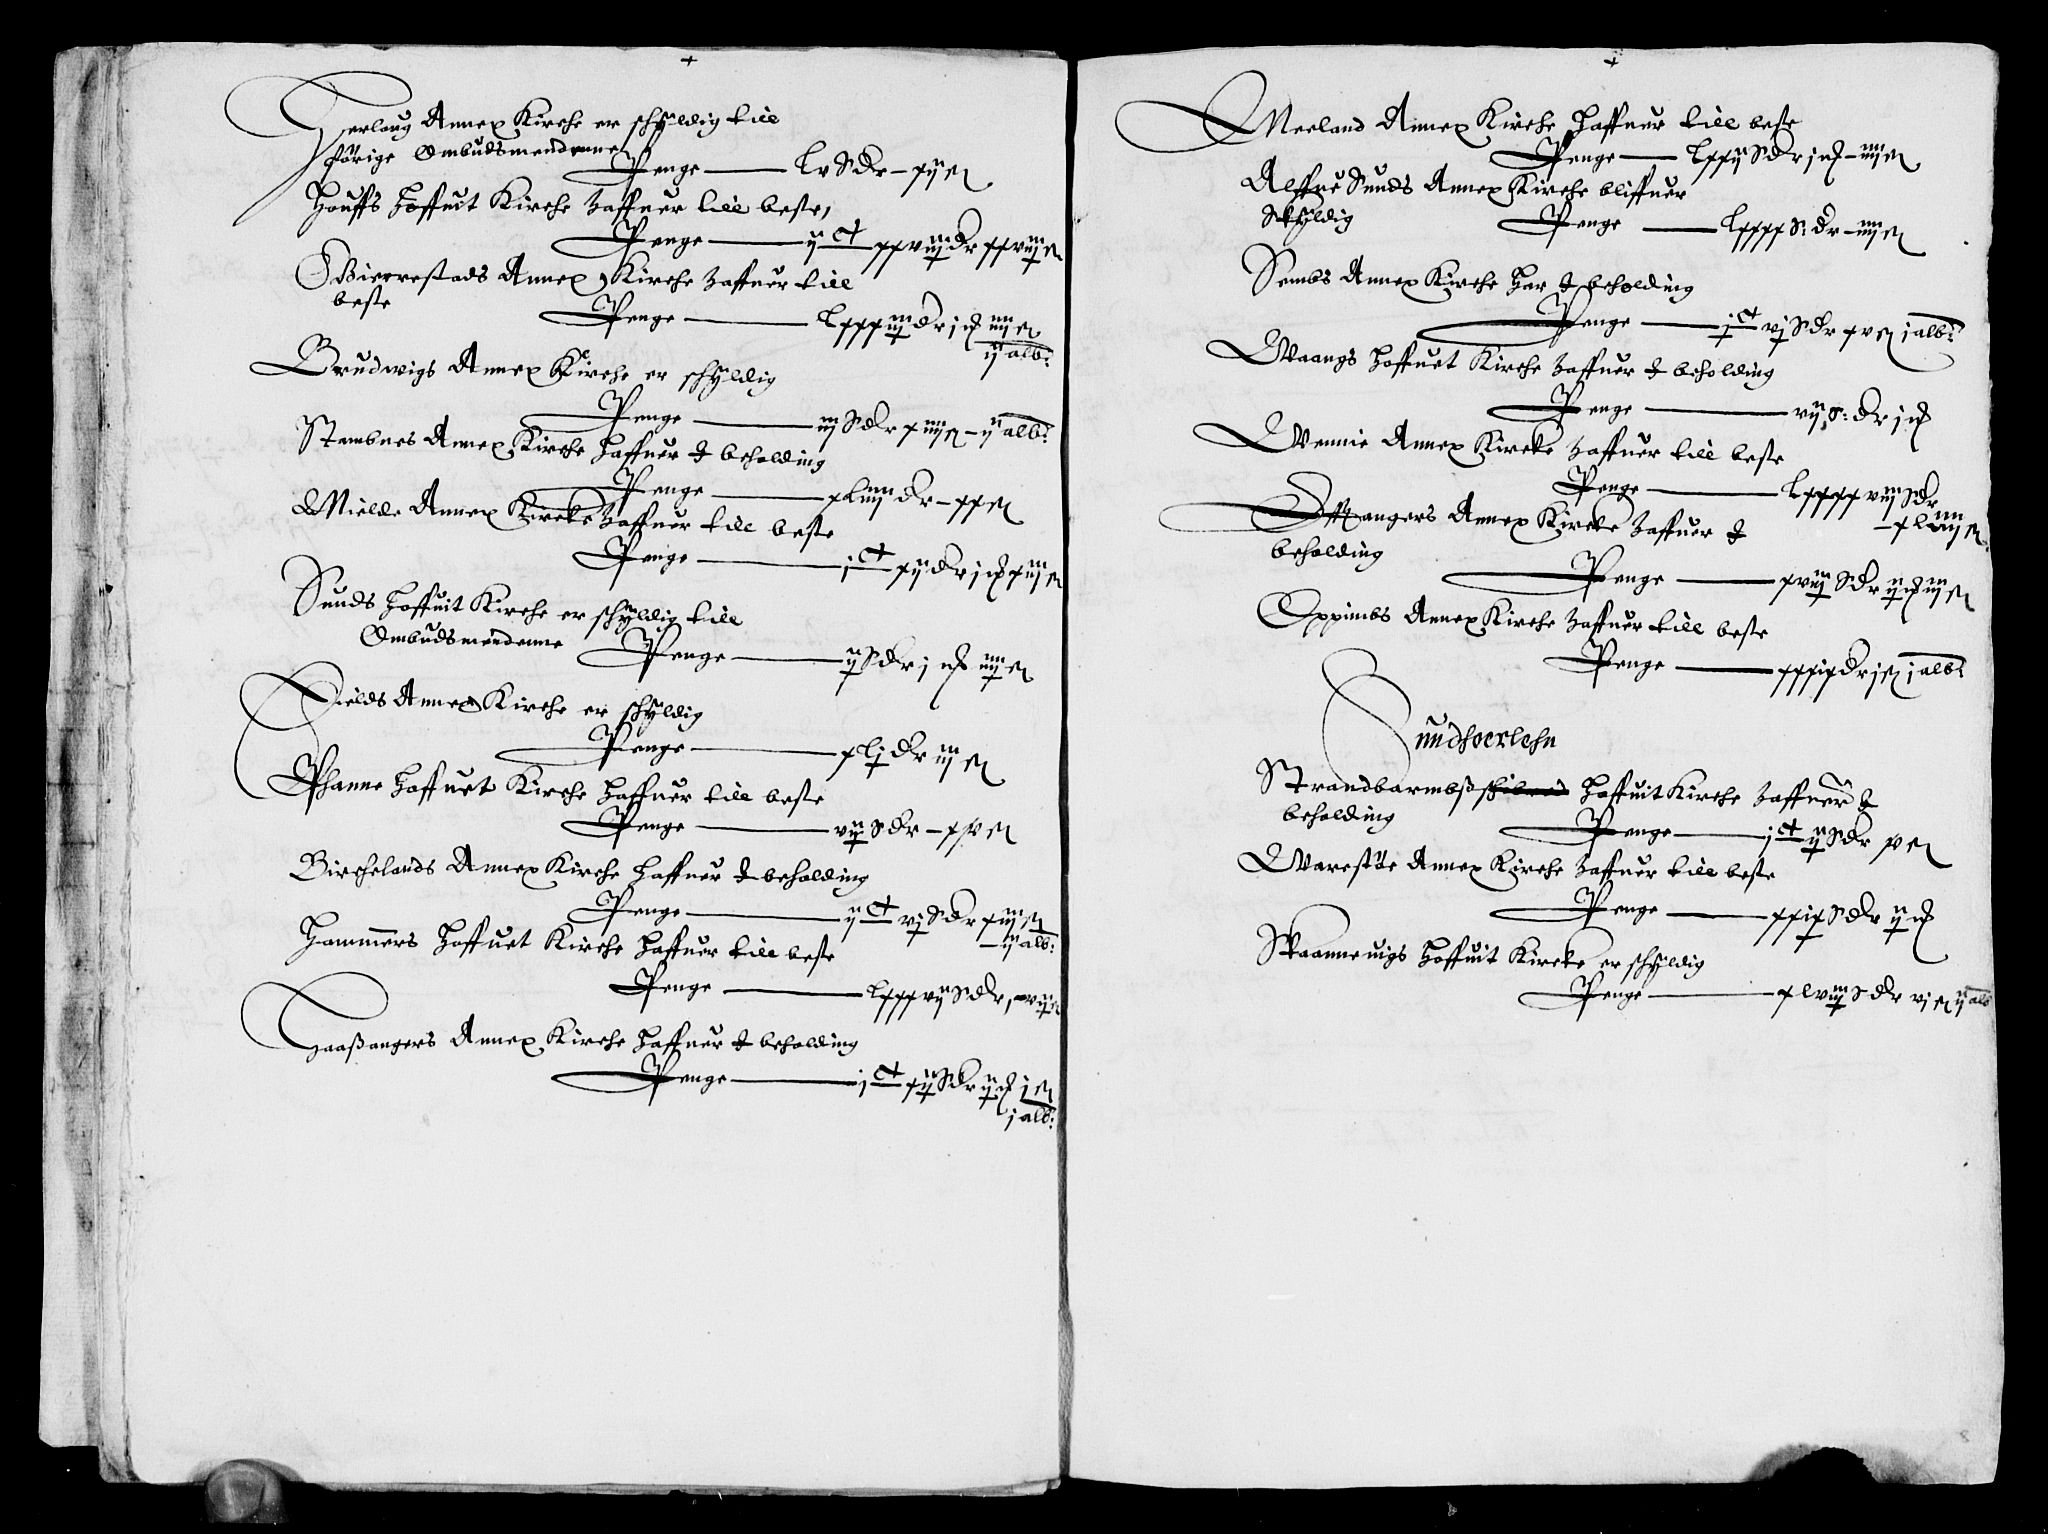 +
Gerloug Annex Kirche er schyldig till
förige Ombudsmendenne
Penge — lv Sdr – xij ß
Houffs Hoffuit Kirche haffuer till beste,
Penge — ij Ct xxviij dr xxviij ß
Bierrestads Annex Kirche haffuer till
beste
Penge — lxxxiij dr j ort iiij ß
ij alb:
Brudwigs Annex Kirche er schyldig
Penge — iij Sdr xiiij ß – ij alb:
Stambnes Annex Kirche haffuer J beholding
Penge — xliiij dr – xx ß
Mielde Annex Kircke haffuer till beste
Penge — j Ct xij dr j ort xiij ß
Sunds Hoffuit Kirche er schyldig till
Ombudsmendenne Penge — ij Sdr j ort iiij ß
Eields Annex Kirche er schyldig
Penge — xlj dr iij ß
Phanne Hoffuet Kirche haffuer till beste
Penge — vij Sdr – xv ß
Birchelands Annex Kirche haffuer J beholding
Penge — ij Ct vj Sdr xiij ß
– ij alb:
Hammers Hoffuet Kirche haffuer till beste
Penge — lxxxvij Sdr, vij ß
Haaßangers Annex Kirche haffuer J beholding
Penge — j Ct xij Sdr ij ort j ß
j alb:
+
Meeland Annex Kirche haffuer till beste
Penge — lxxij Sdr j ort – iiij ß
Alffue Sunds Annex Kirche bliffuer
Skyldig
Penge — lxxxx S: dr – iiij ß
Sembs Annex Kirche har J beholding
Penge — j Ct vj Sdr xv ß j alb:
Waangs Hoffuet Kirche haffuer J beholding
Penge — vij S: dr j ort
Wennie Annex Kircke haffuer till beste
Penge — lxxxxviij Sdr
– xliiij ß
Mangers Annex Kircke haffuer J
beholding
Penge — xviij Sdr ij ort iij ß
Oppimbs Annex Kirche haffuer till beste
Penge — xxxix dr j ß j alb:
Sundhoerlehn
Strandbarmbß Hoffuit Kirche haffuer J
beholding
Penge — j Ct ij Sdr xv ß
Warestöe Annex Kirche haffuer till beste
Penge — xxix Sdr ij ort
Skaanneuigs Hoffuit Kircke er schyldig
Penge — xlviij S dr vj ß ij alb